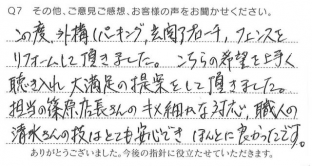 Q7 その他、ご意見ご感想、お客様の声をお聞かせください。
この度、外構(パーキング、玄関アプローチ、フェンスを
リフォームして頂きました。こちらの希望を上手く
聴き入れ大満足の提案をして頂きました。
担当の篠原店長さんのキメ細かな対応、職人の
清水さんの技はとても安心でき ほんとに良かったです。
ありがとうございました。今後の指針に役立たせていただきます。